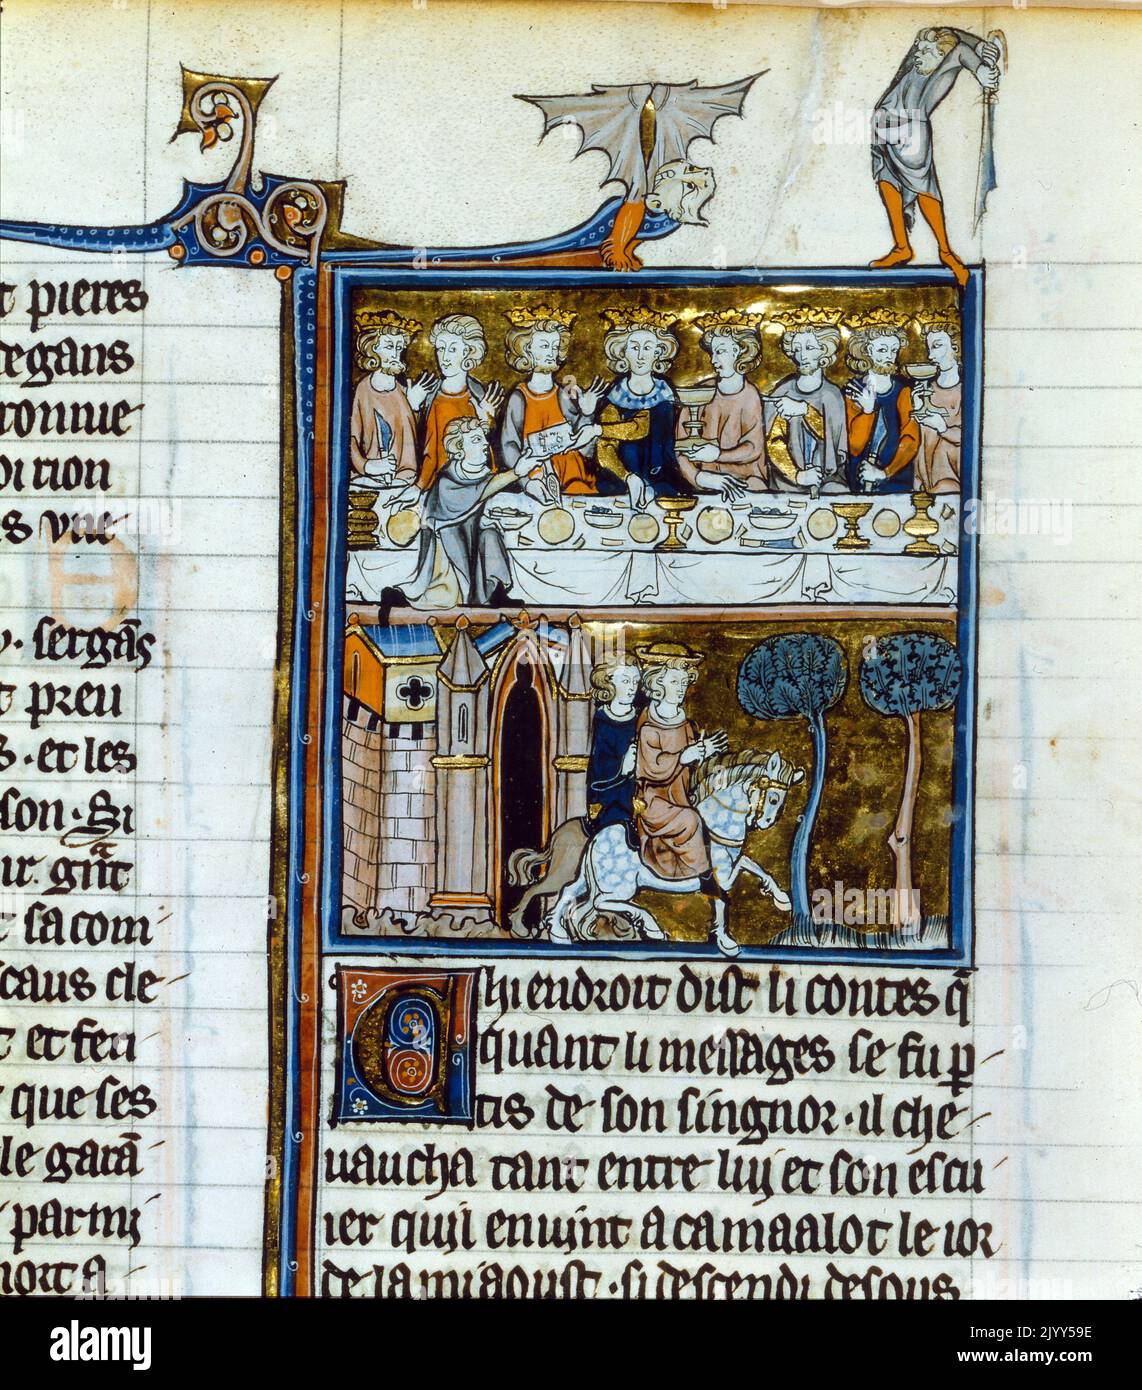 pieres
degans
ronnie
oition
s vne
sergãs
t preu
s · et les
son · Si
ir · gñt
t sa com-
scaus cle-
t et feri-
que ses
le garã-
parmi
mort a-
Chi endroit dist li contes q̃
quant li messages se fu p̱-
tis de son singnor · il che-
uaucha tant entre luy et son escu-
ier quil enuint a camaalot le ior
de la miaoust · si descendi desous
alamy
Image ID: 2JYY59E
www.alamy.com